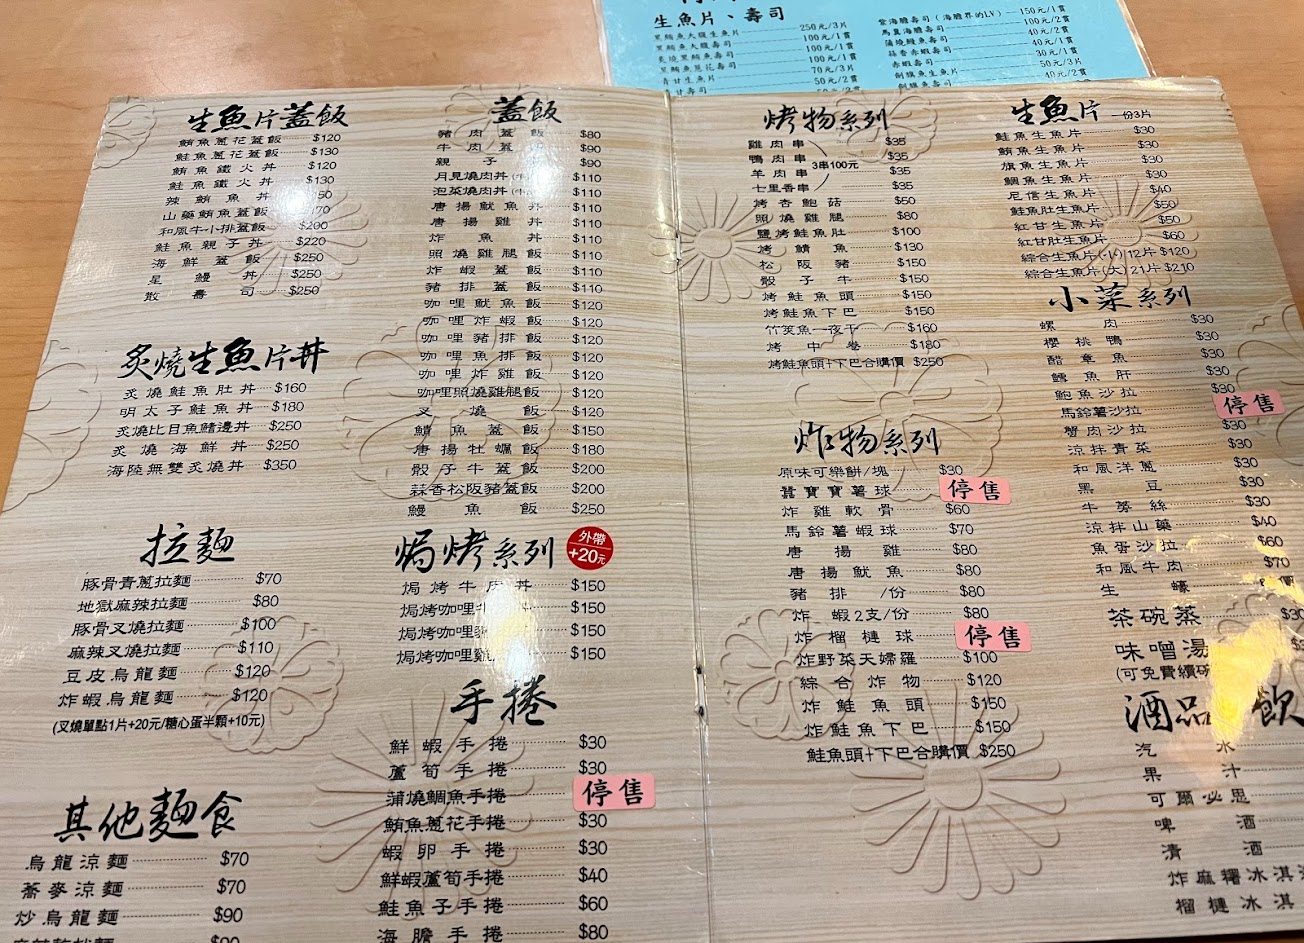 生魚片、壽司
黑鮪魚大腹生魚片 250元/3片
黑鮪魚大腹壽司 100元/1貫
炙燒黑鮪魚壽司 100元/1貫
黑鮪魚蔥花壽司 100元/1貫
青甘生魚片 70元/3片
青甘壽司 50元/2貫
紫海膽壽司(海膽界的LV) 150元/1貫
馬糞海膽壽司 100元/2貫
蒲燒鰻魚壽司 40元/2貫
蒜香赤蝦壽司 40元/1貫
赤蝦壽司 30元/1貫
劍旗魚生魚片 50元/3片
劍旗魚壽司 40元/2貫
生魚片蓋飯
鮪魚蔥花蓋飯 $120
鮭魚蔥花蓋飯 $130
鮪魚鐵火丼 $120
鮭魚鐵火丼 $130
辣鮪魚丼 50
山藥鮪魚蓋飯 70
和風牛小排蓋飯 $200
鮭魚親子丼 $220
海鮮蓋飯 $250
星鰻丼 $250
散壽司 $250
炙燒生魚片丼
炙燒鮭魚肚丼 $160
明太子鮭魚丼 $180
炙燒比目魚鰭邊丼 $250
炙燒海鮮丼 $250
海陸無雙炙燒丼 $350
拉麵
豚骨青蔥拉麵 $70
地獄麻辣拉麵 $80
豚骨叉燒拉麵 $100
麻辣叉燒拉麵 $110
豆皮烏龍麵 $120
炸蝦烏龍麵 $120
(叉燒單點1片+20元/糖心蛋半顆+10元)
其他麵食
烏龍涼麵 $70
蕎麥涼麵 $70
炒烏龍麵 $90
蓋飯
豬肉蓋飯 $80
牛肉蓋 $90
親子 $90
月見燒肉丼(牛 $110
泡菜燒肉丼(牛 $110
唐揚魷魚丼 $110
唐揚雞丼 $110
炸魚丼 $110
照燒雞腿飯 $110
炸蝦蓋飯 $110
豬排蓋飯 $110
咖哩魷魚飯 $120
咖哩炸蝦飯 $120
咖哩豬排飯 $120
咖哩魚排飯 $120
咖哩炸雞飯 $120
咖哩照燒雞腿飯 $120
叉燒飯 $120
鯖魚蓋飯 $150
唐揚牡蠣飯 $180
骰子牛蓋飯 $200
蒜香松阪豬蓋飯 $200
鰻魚飯 $250
焗烤系列
外帶
+20元
焗烤牛肉丼 $150
焗烤咖哩牛 $150
焗烤咖哩豬 $150
焗烤咖哩雞 $150
手捲
鮮蝦手捲 $30
蘆筍手捲 $30
蒲燒鯛魚手捲 停售
鮪魚蔥花手捲 $30
蝦卵手捲 $30
鮮蝦蘆筍手捲 $40
鮭魚子手捲 $60
海膽手捲 $80
烤物系列
雞肉串 $35
鴨肉串 $35
3串100元
羊肉串 $35
七里香串 $35
烤杏鮑菇 $50
照燒雞腿 $80
鹽烤鮭魚肚 $100
烤鯖魚 $130
松阪豬 $150
骰子牛 $150
烤鮭魚頭 $150
烤鮭魚下巴 $150
竹筴魚一夜干 $160
烤中卷 $180
烤鮭魚頭+下巴合購價 $250
炸物系列
原味可樂餅/塊 $30
蠶寶寶薯球 停售
炸雞軟骨 $60
馬鈴薯蝦球 $70
唐揚雞 $80
唐揚魷魚 $80
豬排/份 $80
炸蝦2支/份 $80
炸榴槤球 停售
炸野菜天婦羅 $100
綜合炸物 $120
炸鮭魚頭 $150
炸鮭魚下巴 $150
鮭魚頭+下巴合購價 $250
生魚片 一份3片
鮭魚生魚片 $30
鮪魚生魚片 $30
旗魚生魚片 $30
鯛魚生魚片 $30
尼信生魚片 $40
鮭魚肚生魚片 $50
紅甘生魚片 $50
紅甘肚生魚片 $60
綜合生魚片(小)12片 $120
綜合生魚片(大)21片 $210
小菜系列
螺肉 $30
櫻桃鴨 $30
醋章魚 $30
鱈魚肝 $30
鮑魚沙拉 $30
馬鈴薯沙拉 停售
蟹肉沙拉 $30
涼拌青菜 $30
和風洋蔥 $30
黑豆 $30
牛蒡絲 $30
涼拌山藥 $40
魚蛋沙拉 $60
和風牛肉 $70
生蠔 價
茶碗蒸 $30
味噌湯
(可免費續碗
酒品 飲
汽水
果汁
可爾必思
啤酒
清酒
炸麻糬冰淇淋
榴槤冰淇